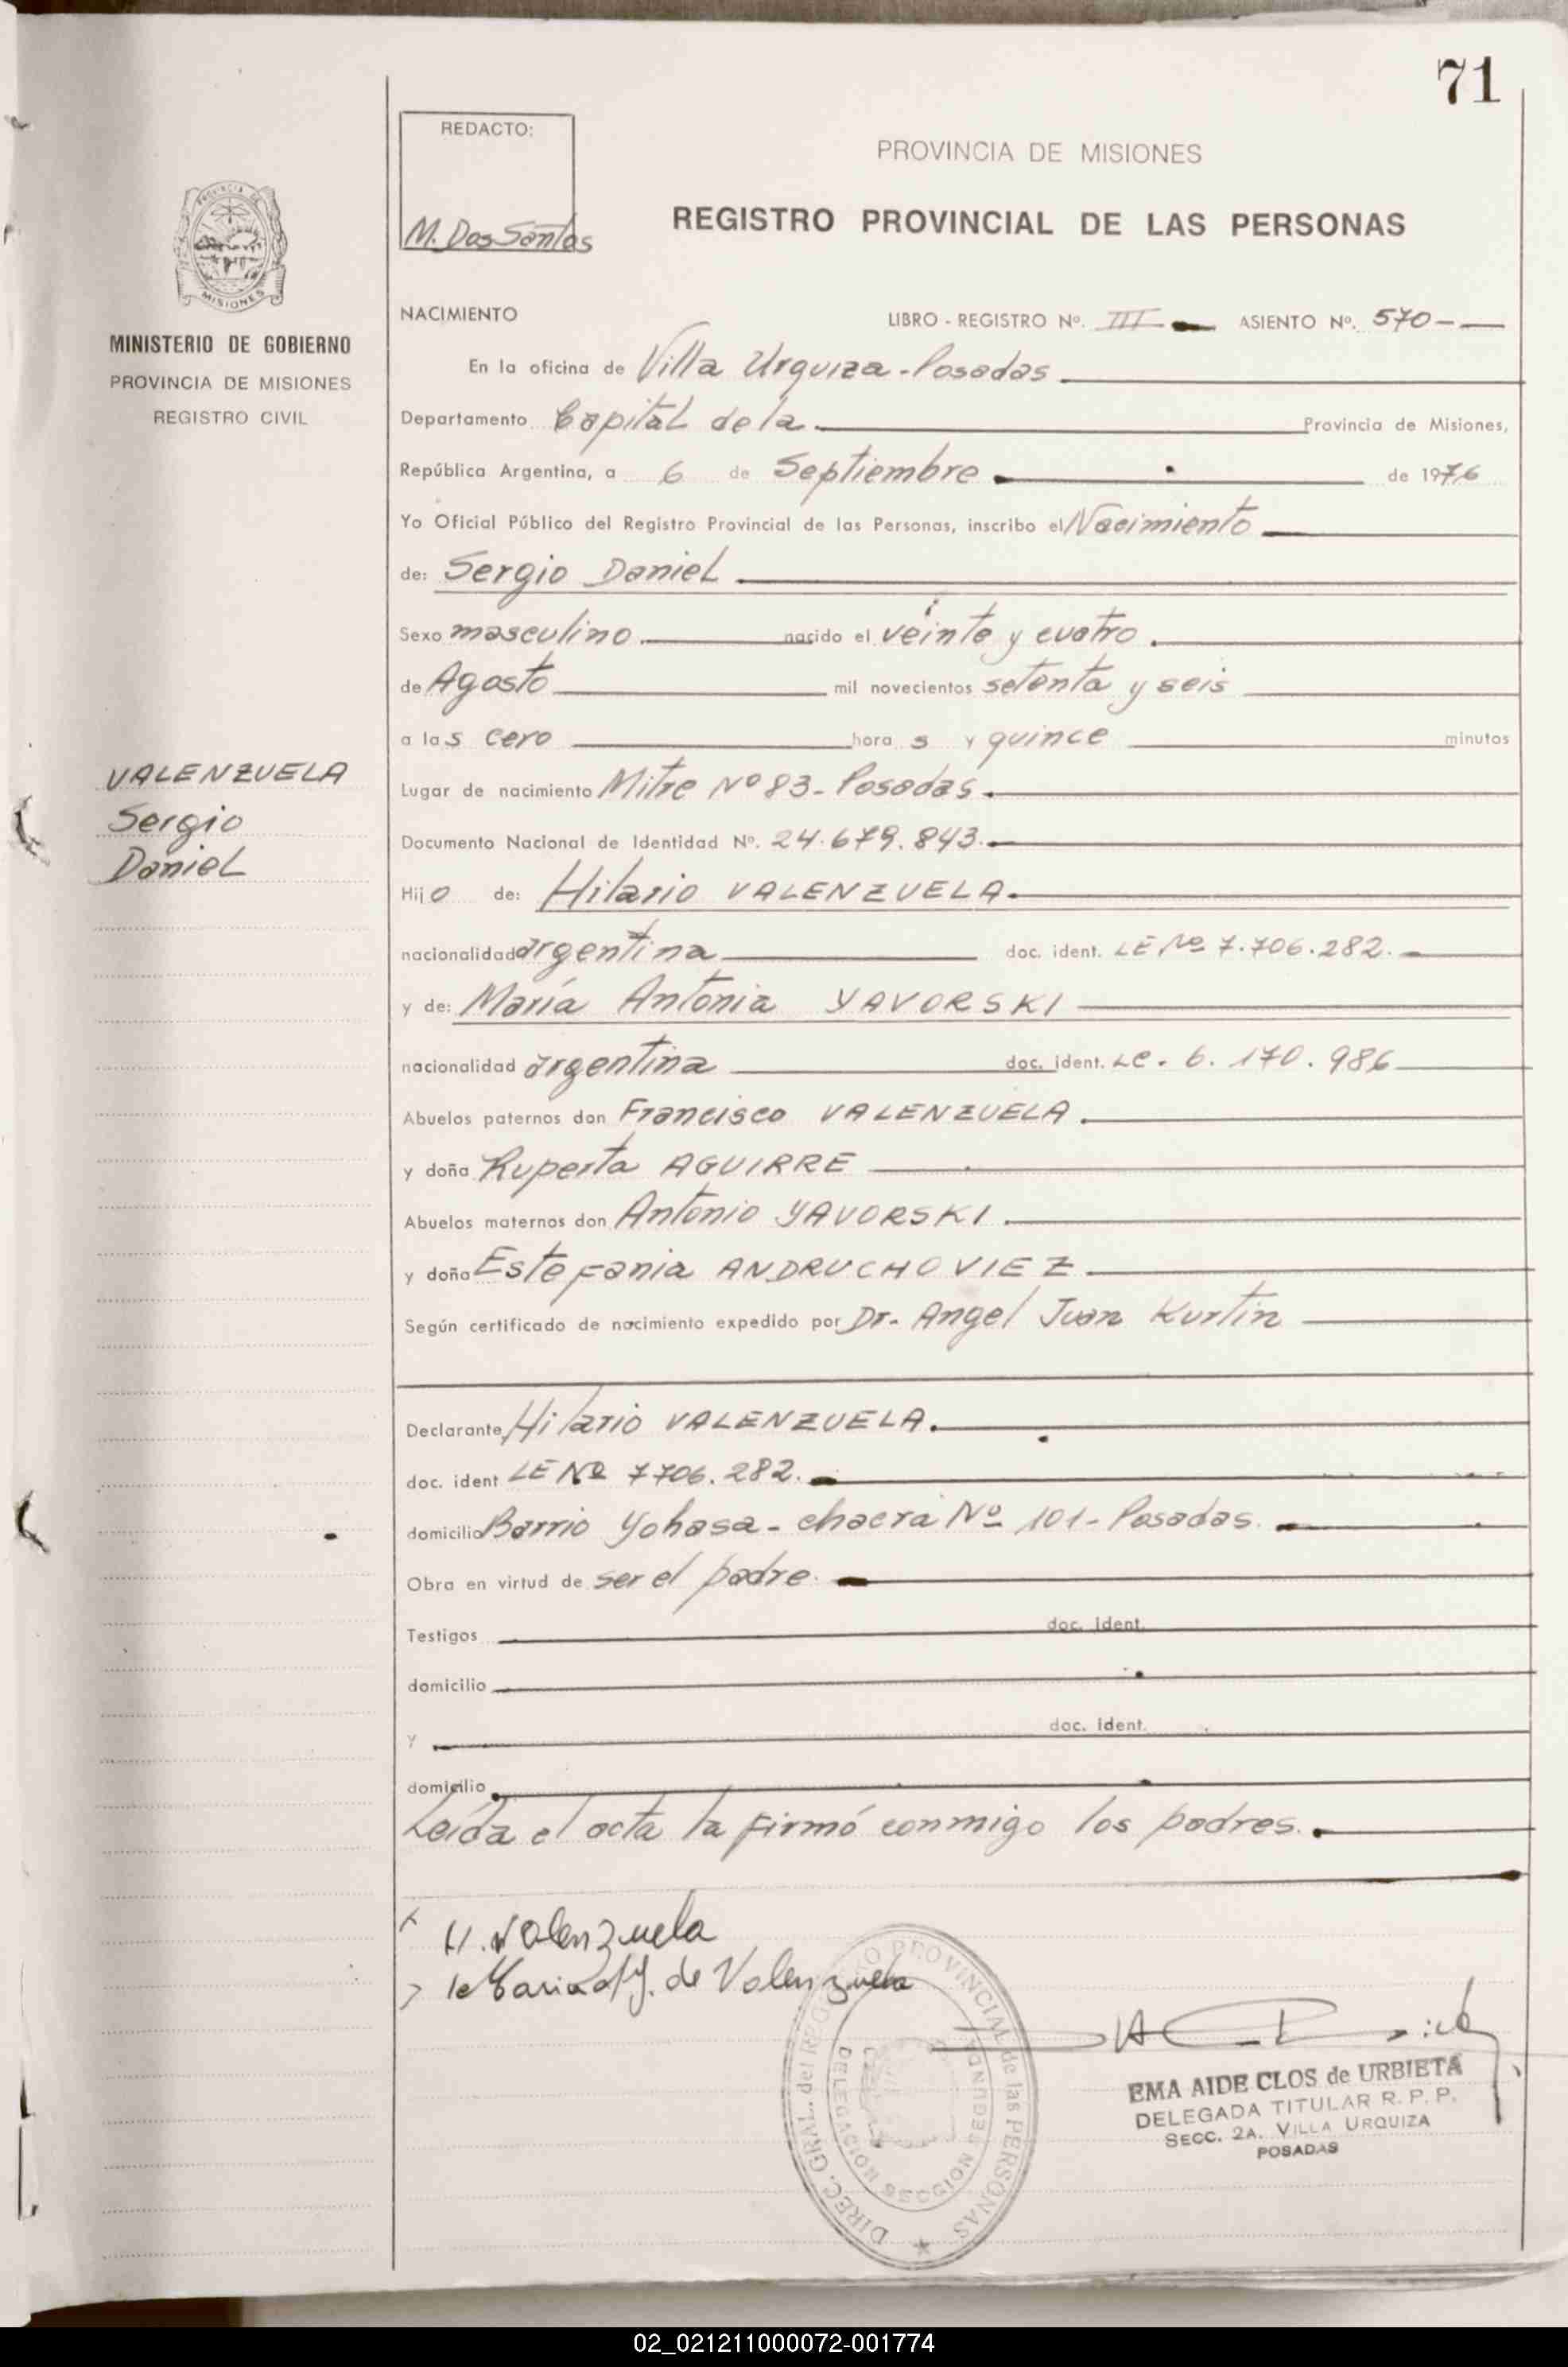 71
REDACTO:
M. Dos Santos
PROVINCIA DE MISIONES
REGISTRO PROVINCIAL DE LAS PERSONAS
PROVINCIA DE
MISIONES
MINISTERIO DE GOBIERNO
PROVINCIA DE MISIONES
REGISTRO CIVIL
VALENZUELA
Sergio
Daniel
NACIMIENTO
LIBRO - REGISTRO Nº. III ASIENTO Nº. 570-
En la oficina de Villa Urquiza - Posadas
Departamento Capital de la Provincia de Misiones,
República Argentina, a 6 de Septiembre de 1976
Yo Oficial Público del Registro Provincial de las Personas, inscribo el Nacimiento
de: Sergio Daniel
Sexo masculino nacido el veinte y cuatro
de Agosto mil novecientos setenta y seis
a las cero horas y quince minutos
Lugar de nacimiento Mitre Nº 83 - Posadas
Documento Nacional de Identidad Nº. 24.679.843.
Hijo de: Hilario VALENZUELA
nacionalidad argentina doc. ident. LE Nº 7.706.282.
y de: María Antonia YAVORSKI
nacionalidad argentina doc. ident. LC. 6.170.986
Abuelos paternos don Francisco VALENZUELA
y doña Ruperta AGUIRRE
Abuelos maternos don Antonio YAVORSKI
y doña Estefania ANDRUCHOVIEZ
Según certificado de nacimiento expedido por Dr. Angel Juan Kurtin
Declarante Hilario VALENZUELA.
doc. ident LE Nº 7706.282.
domicilio Barrio Yohasa - chacra Nº 101 - Posadas.
Obra en virtud de ser el padre.
Testigos doc. ident.
domicilio
y doc. ident.
domicilio
Leída el acta la firmó conmigo los padres.
H. Valenzuela
Maria A Y. de Valenzuela
DIREC. GRAL. del REGISTRO PROVINCIAL de las PERSONAS
DELEGACION SECCION SEGUNDA
EMA AIDE CLOS de URBIETA
DELEGADA TITULAR R. P. P.
SECC. 2A. VILLA URQUIZA
POSADAS
02_021211000072-001774